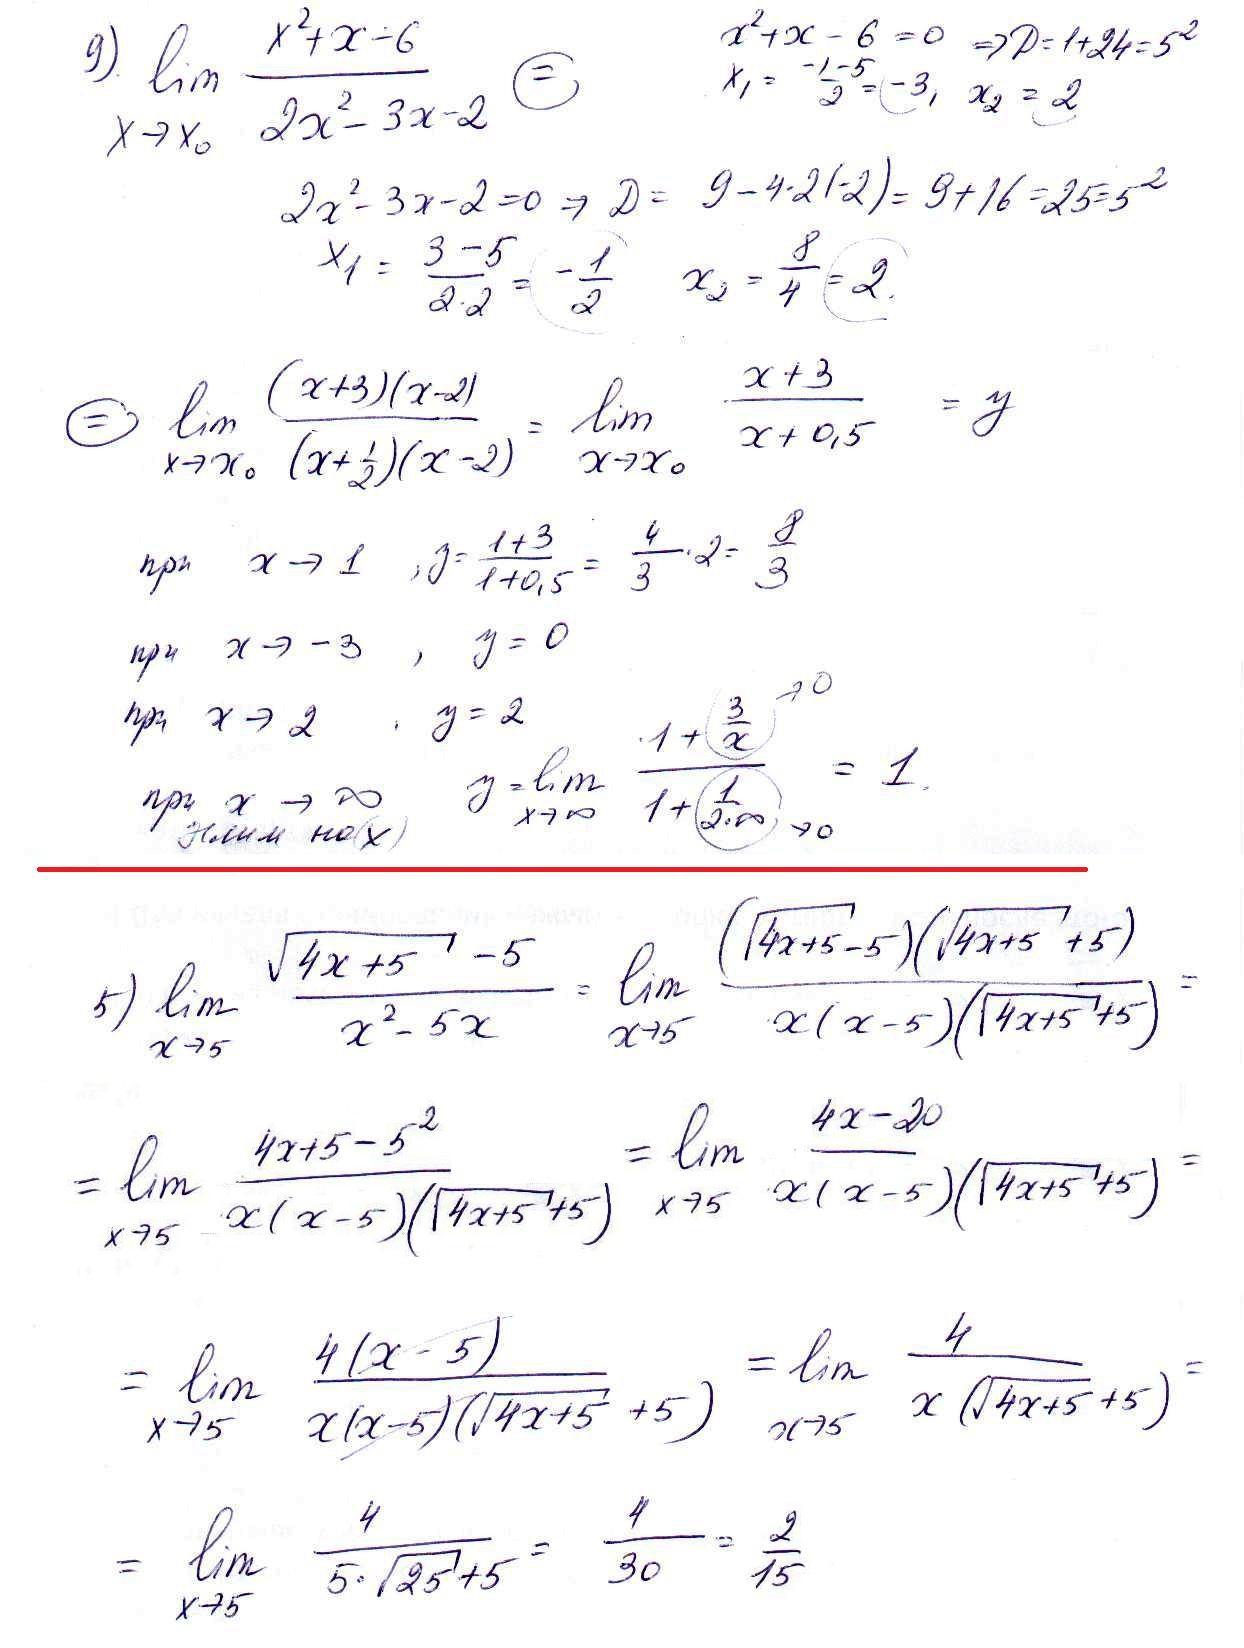 9) lim x→x₀ (x²+x-6)/(2x²-3x-2) ⊜ x²+x-6=0 ⇒ D=1+24=5²
x₁ = (-1-5)/2 = -3, x₂ = 2
2x²-3x-2=0 ⇒ D = 9-4·2(-2) = 9+16=25=5²
x₁ = (3-5)/(2·2) = -1/2 x₂ = 8/4 = 2.
⊜ lim x→x₀ ((x+3)(x-2))/((x+1/2)(x-2)) = lim x→x₀ (x+3)/(x+0,5) = y
при x→1, y = (1+3)/(1+0,5) = 4/3·2 = 8/3
при x→-3, y=0
при x→2, y=2
при x→∞ y = lim x→∞ (1+3/x)/(1+1/(2·∞)) = 1. →0 →0
на (x)
5) lim x→5 (√(4x+5) -5)/(x²-5x) = lim x→5 ((√(4x+5)-5)(√(4x+5)+5))/(x(x-5)(√(4x+5)+5)) =
= lim x→5 (4x+5-5²)/(x(x-5)(√(4x+5)+5)) = lim x→5 (4x-20)/(x(x-5)(√(4x+5)+5)) =
= lim x→5 (4(x-5))/(x(x-5)(√(4x+5)+5)) = lim x→5 4/(x(√(4x+5)+5)) =
= lim x→5 4/(5·√25+5) = 4/30 = 2/15